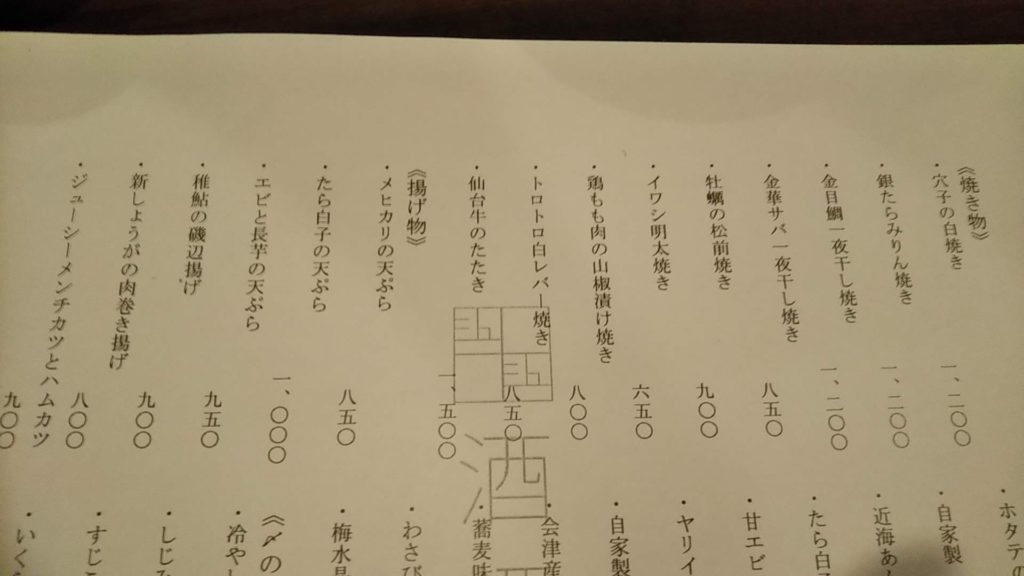 《焼き物》
・穴子の白焼き 一、二〇〇
・銀たらみりん焼き 一、二〇〇
・金目鯛一夜干し焼き 一、二〇〇
・金華サバ一夜干し焼き 八五〇
・牡蠣の松前焼き 九〇〇
・イワシ明太焼き 六五〇
・鶏もも肉の山椒漬け焼き 八〇〇
・トロトロ白レバー焼き 八五〇
・仙台牛のたたき 一、五〇〇
《揚げ物》
・メヒカリの天ぷら 八五〇
・たら白子の天ぷら 一、〇〇〇
・エビと長芋の天ぷら 九五〇
・稚鮎の磯辺揚げ 九〇〇
・新しょうがの肉巻き揚げ 八〇〇
・ジューシーメンチカツとハムカツ 九〇〇
酒
・ホタテの
・自家製
・近海あ
・たら白
・甘エビ
・ヤリイ
・自家製
・会津産
・蕎麦味
・わさび
・梅水
《〆の
・冷や
・しじ
・すじ
・いく